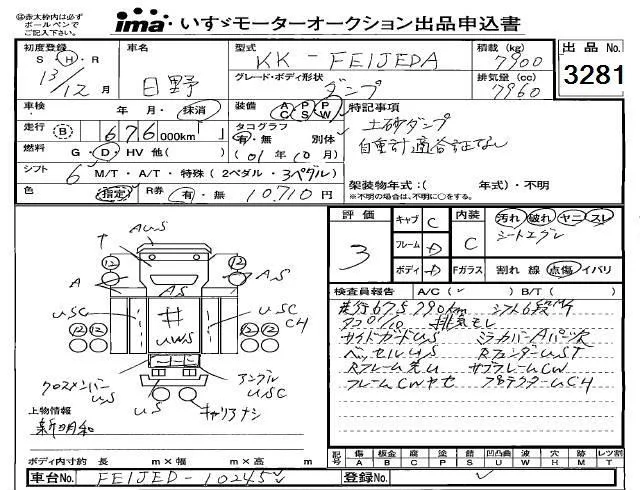 ※赤太枠内は必ず
ボールペンで
ご記入下さい。
ima いすゞモーターオークション出品申込書
初度登録 S・H・R 13/12月
車名 日野
型式 KK-FEIJEDA
積載(kg) 7900
グレード・ボディ形状 ダンプ
排気量(cc) 7960
出品No. 3281
車検 年・月・抹消
装備 AC PS PW
特記事項
土砂ダンプ
自重計適合証なし
走行 B 676,000km
タコグラフ 有・無 別体
(01年10月)
燃料 G・D・HV 他( )
シフト 6 M/T・A/T・特殊(2ペダル・3ペダル)
架装物年式:( 年式)・不明
※不明の場合は、不明に○をする。
色 指定 R券 有・無 10,710円
評価 3
キャブ C
フレーム D
ボディ D
内装 C
汚れ 破れ ヤニ スレ
シートエグレ
Fガラス 割れ 線 点傷 イバリ
検査員報告 A/C( ✓ ) B/T( )
走行675790km シフト6段M/T
タコグ/10 排気モレ
サイドガードUS ミラーカバーAパーツ欠
ベッセルUS RフェンダーUST
Rフレーム先U サブフレームCW
フレームCWヤセ プロテクターCH
AUS
↑
12 12
A AS AS
USC USC CH
井 UWS
12 12 12 12
クロスメンバーUS
アングルUSC
US
キャリアナシ
上物情報
新明和
ボディ内寸約 長 m×幅 m×高 m
記号 傷 A 板金 B 腐 C 塗 P 錆 S 凹凸曲 U 波 W 穴 H 跡 M レツ割 T
車台No. FEIJED-10245
登録No.